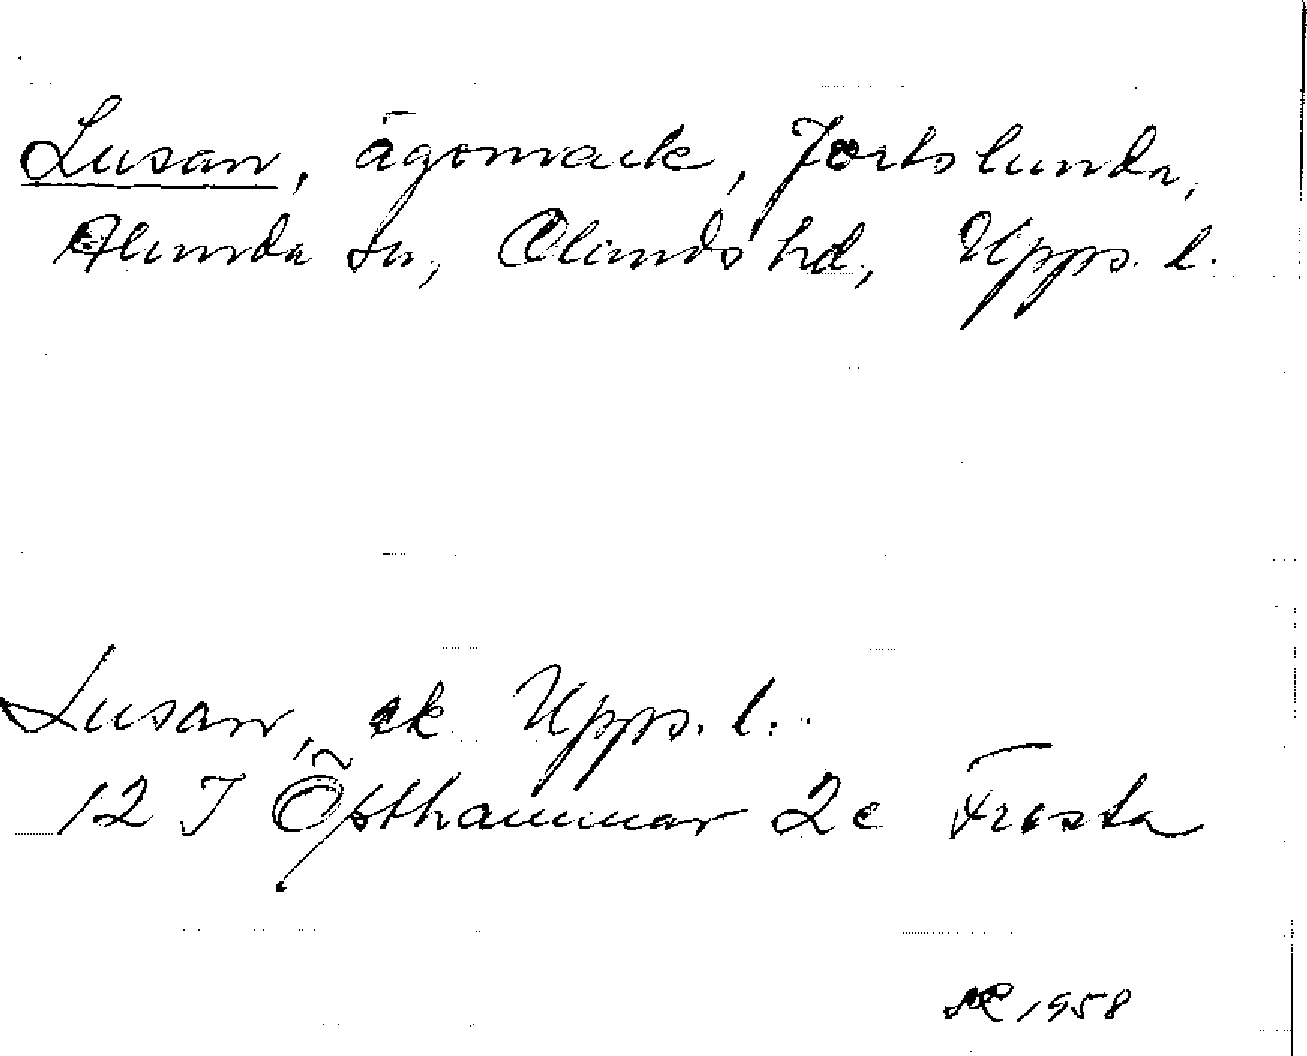 Lusan, ägomark, Fortslunda,
Alunda sn, Olands hd, Upps. l.
Lusan, ek Upps. l.
12 I Östhammar 2c Frösta
1958